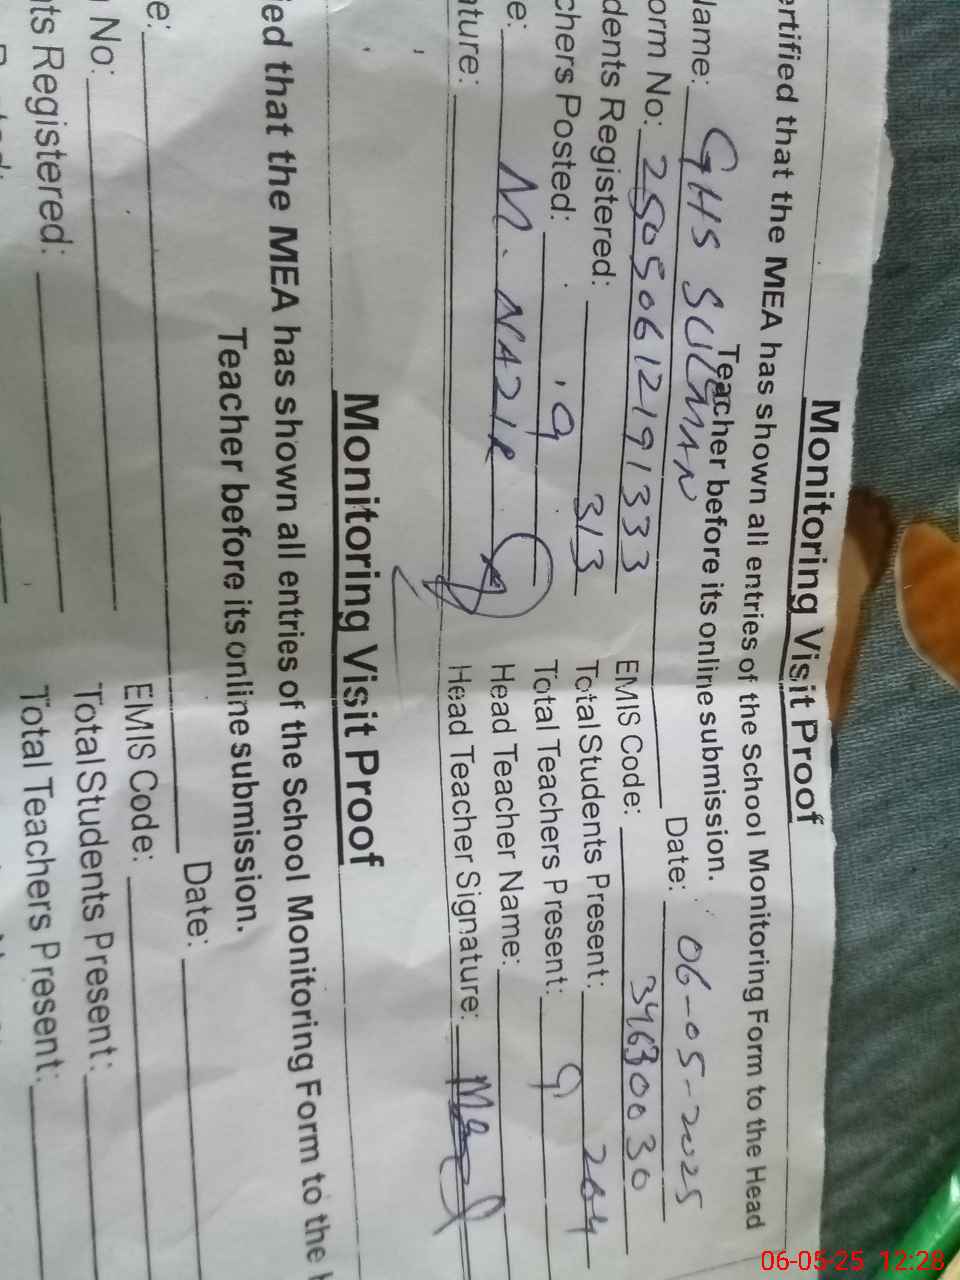 Monitoring Visit Proof
ertified that the MEA has shown all entries of the School Monitoring Form to the Head
Teacher before its online submission.
Name: GHS SULMAN Date: 06-05-2025
orm No: 25050612191333 EMIS Code: 34630030
dents Registered: 313 Total Students Present: 264
chers Posted: 9 Total Teachers Present: 9
e: M. NAZIR Head Teacher Name:
ature: Head Teacher Signature:
Monitoring Visit Proof
ied that the MEA has shown all entries of the School Monitoring Form to the
Teacher before its online submission.
e: Date:
No: EMIS Code:
ts Registered: Total Students Present:
Total Teachers Present:
06-05-25 12:28